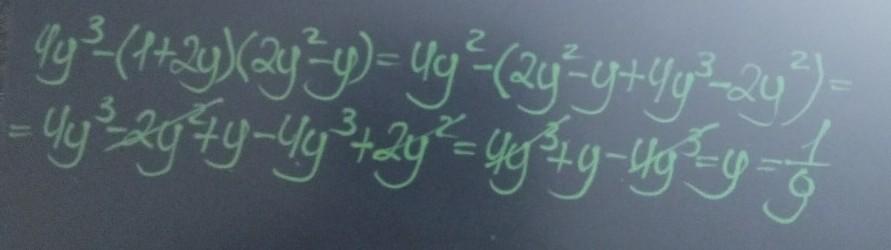 4y³-(1+2y)(2y²-y)=4y²-(2y²-y+4y³-2y²)=
=4y³-2y²+y-4y³+2y²=4y³+y-4y³=y=1/9